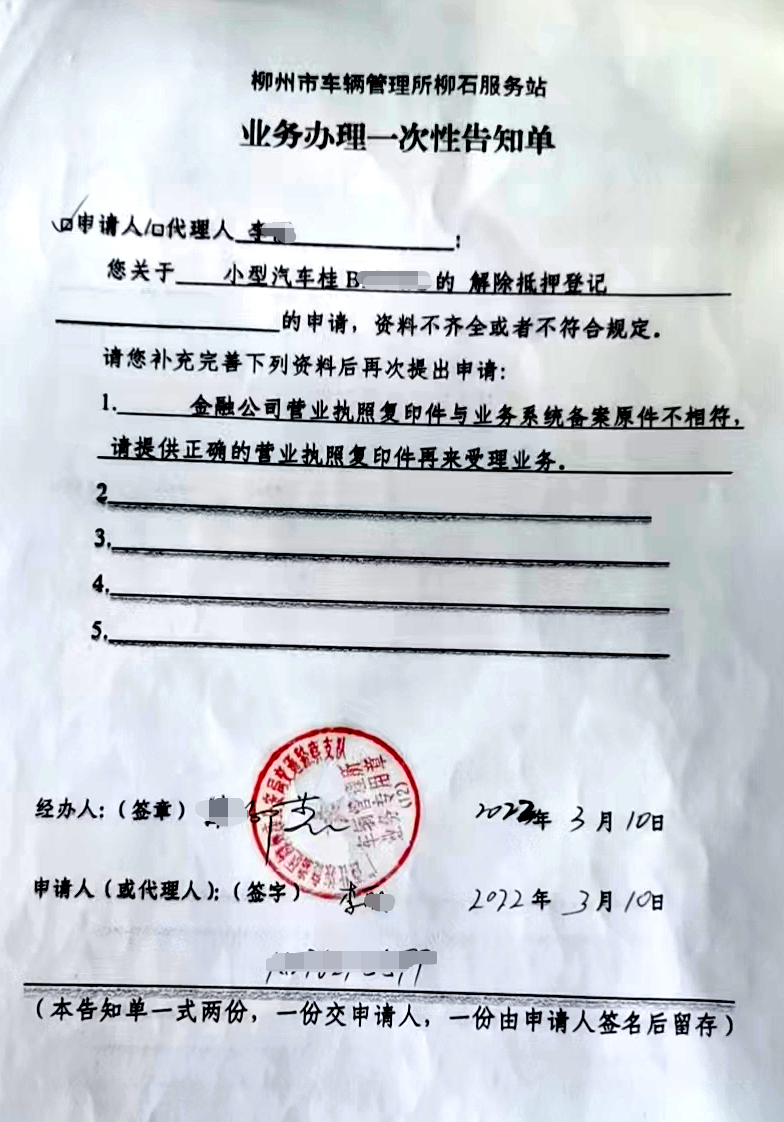 柳州市车辆管理所柳石服务站
业务办理一次性告知单
☑申请人/□代理人 李:
您关于 小型汽车桂B的 解除抵押登记
的申请,资料不齐全或者不符合规定。
请您补充完善下列资料后再次提出申请:
1. 金融公司营业执照复印件与业务系统备案原件不相符,
请提供正确的营业执照复印件再来受理业务。
2
3.
4.
5.
交通警察支队
车辆管理所
业务专用章
(12)
经办人:(签章) 2022年 3月 10日
申请人(或代理人):(签字) 李 2022年 3月 10日
(本告知单一式两份,一份交申请人,一份由申请人签名后留存)